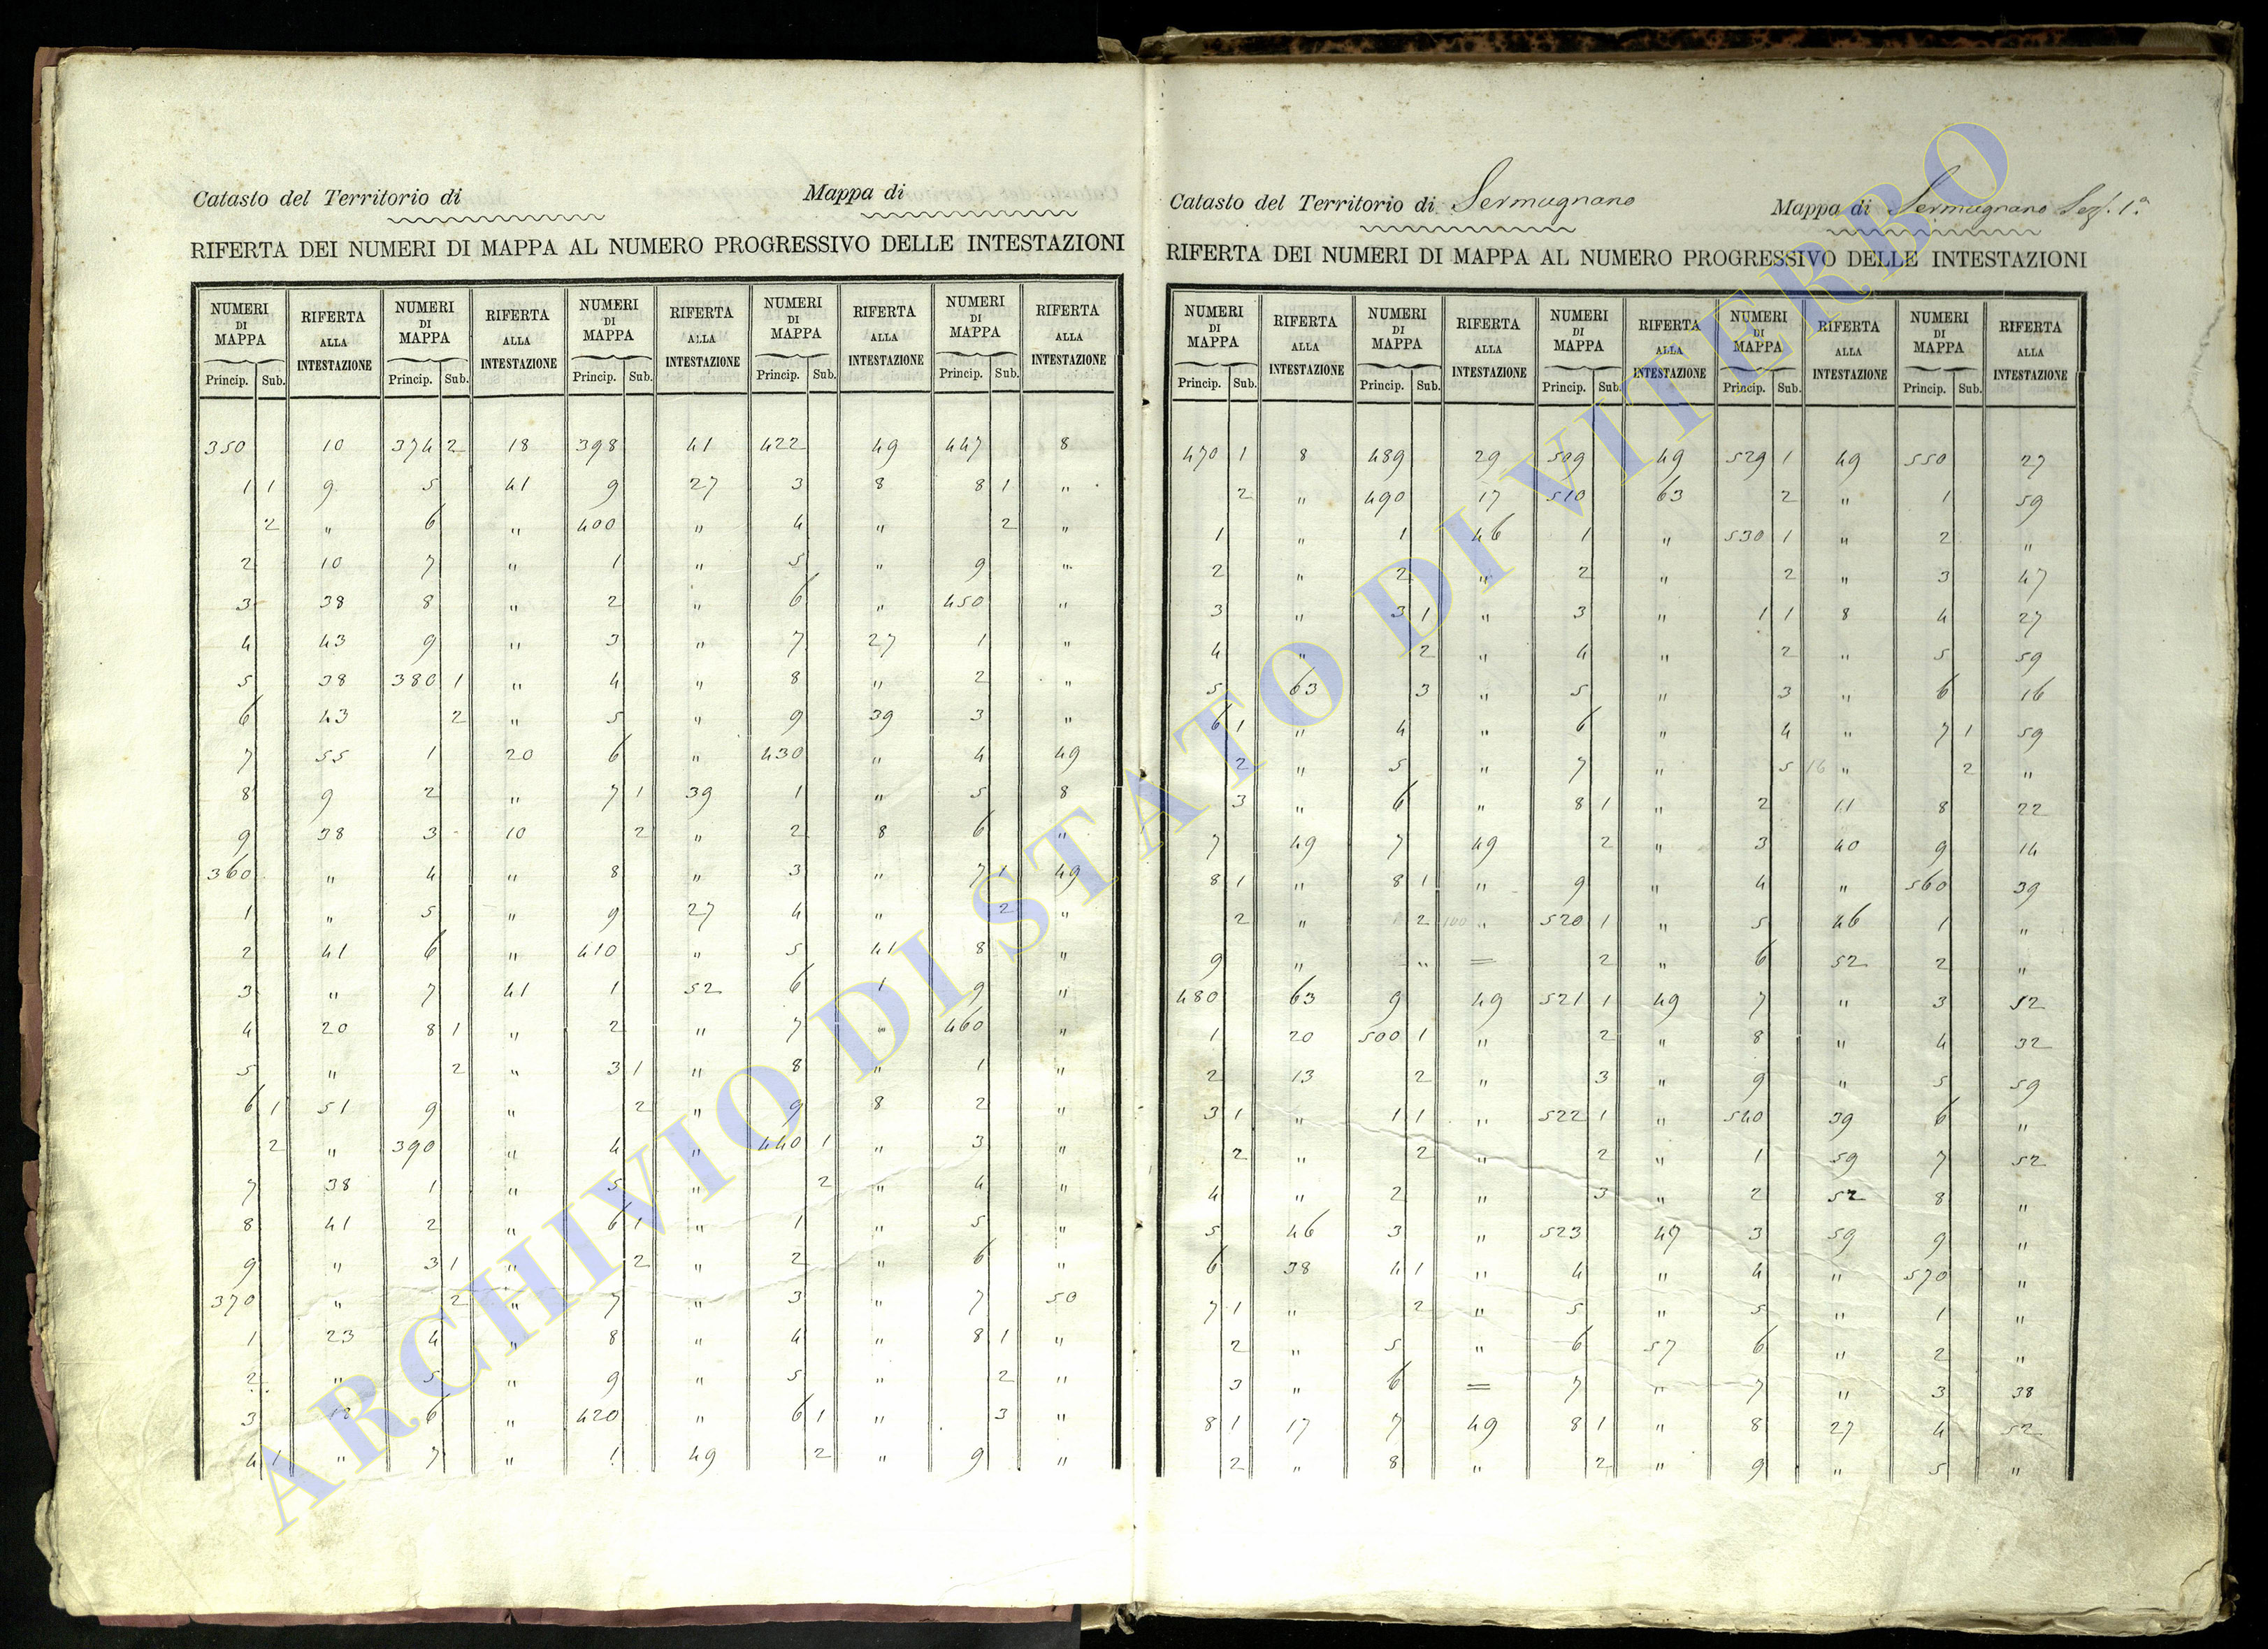 Catasto del Territorio di
Mappa di
RIFERTA DEI NUMERI DI MAPPA AL NUMERO PROGRESSIVO DELLE INTESTAZIONI
NUMERI DI MAPPA RIFERTA ALLA INTESTAZIONE NUMERI DI MAPPA RIFERTA ALLA INTESTAZIONE NUMERI DI MAPPA RIFERTA ALLA INTESTAZIONE NUMERI DI MAPPA RIFERTA ALLA INTESTAZIONE NUMERI DI MAPPA RIFERTA ALLA INTESTAZIONE
Princip. Sub. Princip. Sub. Princip. Sub. Princip. Sub. Princip. Sub.
350 10 374 2 18 398 41 422 49 447 8
1 1 9 5 41 9 27 3 8 8 1 "
2 " 6 " 400 " 4 " 2 "
2 10 7 " 1 " 5 " 9 "
3 38 8 " 2 " 6 " 450 "
4 43 9 " 3 " 7 27 1 "
5 38 380 1 " 4 " 8 " 2 "
6 43 2 " 5 " 9 39 3 "
7 55 1 20 6 " 430 " 4 49
8 9 2 " 7 1 39 1 " 5 8
9 38 3 10 2 " 2 8 6 "
360 " 4 " 8 " 3 " 7 1 49
1 " 5 " 9 27 4 " 2 "
2 41 6 " 410 " 5 41 8 "
3 " 7 41 1 52 6 1 9 "
4 20 8 1 " 2 " 7 " 460 "
5 " 2 " 3 1 " 8 " 1 "
6 1 51 9 " 2 " 9 8 2 "
2 " 390 " 4 " 440 1 " 3 "
7 38 1 " 5 " 2 " 4 "
8 41 2 " 6 1 " 1 " 5 "
9 " 3 1 " 2 " 2 " 6 "
370 " 2 " 7 " 3 " 7 50
1 23 4 " 8 " 4 " 8 1 "
2 " 5 " 9 " 5 " 2 "
3 18 6 " 420 " 6 1 " 3 "
4 1 " 7 " 1 49 2 " 9 "
Catasto del Territorio di Sermugnano
Mappa di Sermugnano Sez. 1ª
RIFERTA DEI NUMERI DI MAPPA AL NUMERO PROGRESSIVO DELLE INTESTAZIONI
NUMERI DI MAPPA RIFERTA ALLA INTESTAZIONE NUMERI DI MAPPA RIFERTA ALLA INTESTAZIONE NUMERI DI MAPPA RIFERTA ALLA INTESTAZIONE NUMERI DI MAPPA RIFERTA ALLA INTESTAZIONE NUMERI DI MAPPA RIFERTA ALLA INTESTAZIONE
Princip. Sub. Princip. Sub. Princip. Sub. Princip. Sub. Princip. Sub.
470 1 8 489 29 509 49 529 1 49 550 27
2 " 490 17 510 63 2 " 1 59
1 " 1 46 1 " 530 1 " 2 "
2 " 2 " 2 " 2 " 3 47
3 " 3 1 " 3 " 1 1 8 4 27
4 " 2 " 4 " 2 " 5 59
5 63 3 " 5 " 3 " 6 16
6 1 " 4 " 6 " 4 " 7 1 59
2 " 5 " 7 " 5 16 " 2 "
3 " 6 " 8 1 " 2 11 8 22
7 49 7 49 2 " 3 40 9 14
8 1 " 8 1 " 9 " 4 " 560 39
2 " 2 100 " 520 1 " 5 46 1 "
9 " " = 2 " 6 52 2 "
480 63 9 49 521 1 49 7 " 3 52
1 20 500 1 " 2 " 8 " 4 32
2 13 2 " 3 " 9 " 5 59
3 1 " 1 1 " 522 1 " 540 39 6 "
2 " 2 " 2 " 1 59 7 52
4 " 2 " 3 " 2 52 8 "
5 46 3 " 523 47 3 59 9 "
6 38 4 1 " 4 " 4 " 570 "
7 1 " 2 " 5 " 5 " 1 "
2 " 5 " 6 57 6 " 2 "
3 " 6 = 7 " 7 " 3 38
8 1 17 7 49 8 1 " 8 27 4 52
2 " 8 " 2 " 9 " 5 "
ARCHIVIO DI STATO DI VITERBO